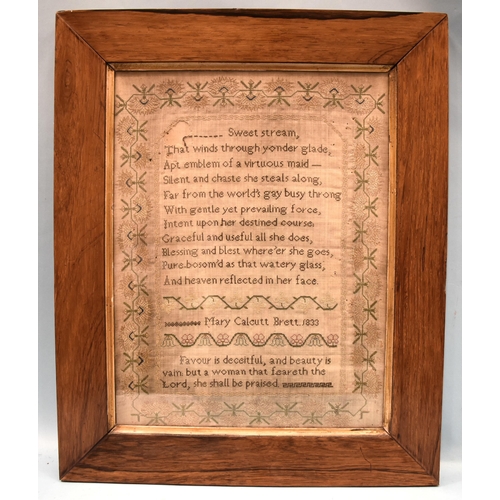 Sweet stream,
That winds through yonder glade,
Apt emblem of a virtuous maid —
Silent and chaste she steals along,
Far from the world's gay busy throng
With gentle yet prevailing force,
Intent upon her destined course.
Graceful and useful all she does,
Blessing and blest where'er she goes,
Pure-bosom'd as that watery glass,
And heaven reflected in her face.
Mary Calcutt Brett. 1833
Favour is deceitful, and beauty is
vain: but a woman that feareth the
Lord, she shall be praised.